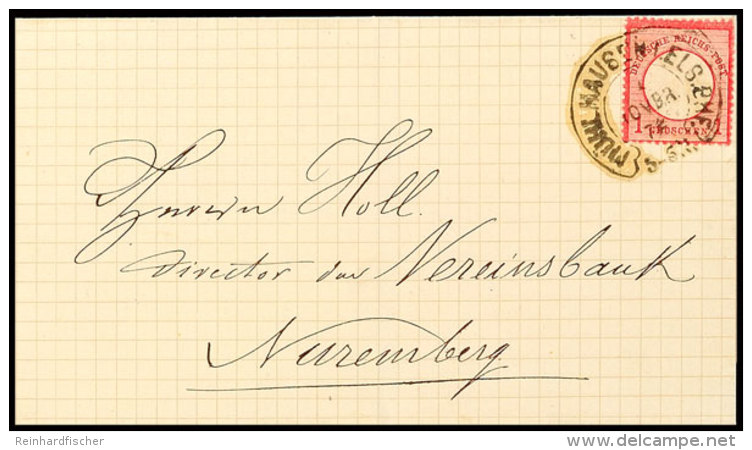 MÜHLHAUSEN / ELS. BHF.
DEUTSCHE REICHS-POST
1 GROSCHEN 1
Herrn Holl.
Director der Vereinsbank
Nuremberg
Reinhardfischer
delcampe.net